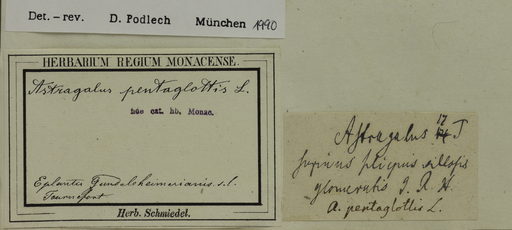 Det. – rev. D. Podlech München 1990
HERBARIUM REGIUM MONACENSE.
Astragalus pentaglottis L.
fide cat. hb. Monac.
E plantis Gundelsheimerianis s. l.
Tournefort
Herb. Schmiedel.
Astragalus 17 T
supinus siliquis villosis
glomeratis I. R. H.
A. pentaglottis L.